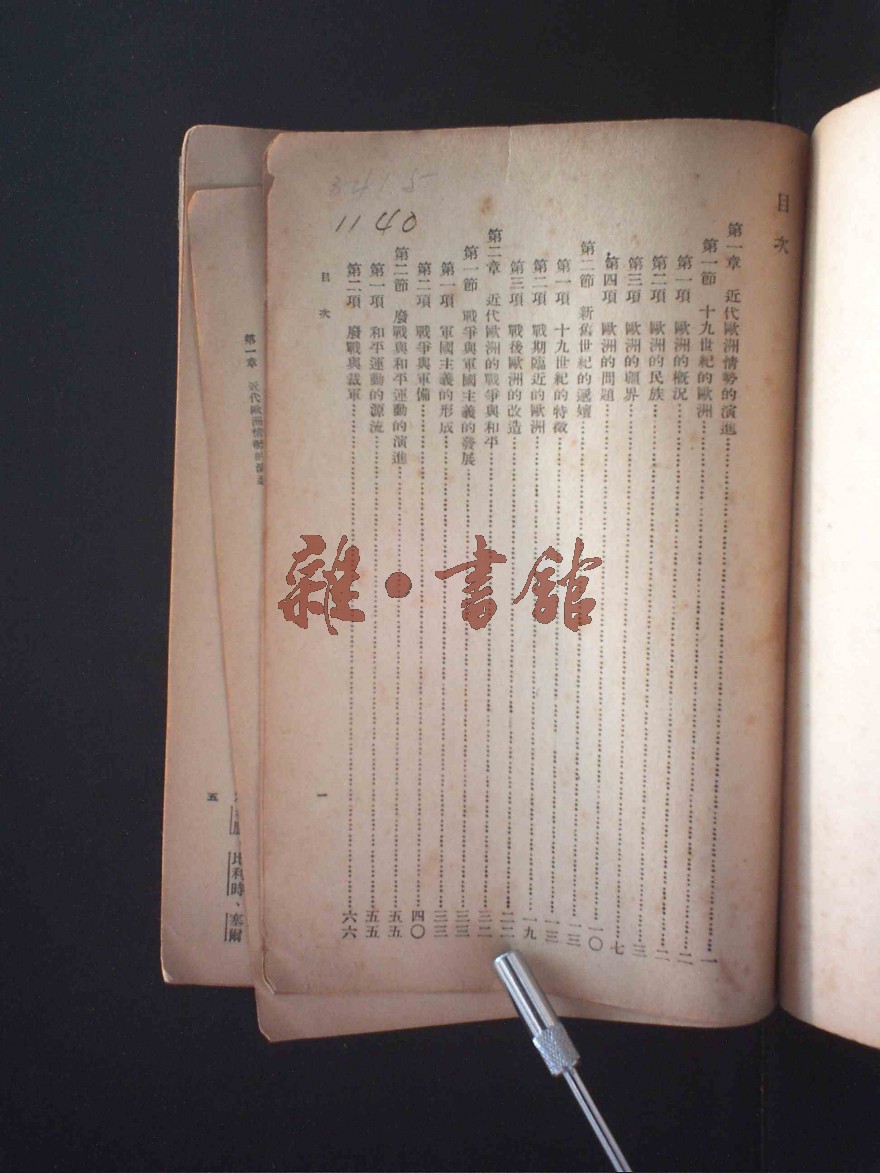 目次
第一章　近代歐洲情勢的演進……一
第一節　十九世紀的歐洲……一
第一項　歐洲的概況……二
第二項　歐洲的民族……二
第三項　歐洲的疆界……三
第四項　歐洲的問題……七
第二節　新舊世紀的遞嬗……一〇
第一項　十九世紀的特徵……一三
第二項　戰期臨近的歐洲……一九
第三項　戰後歐洲的改造……二二
第二章　近代歐洲的戰爭與和平……三二
第一節　戰爭與軍國主義的發展……三三
第一項　軍國主義的形成……三三
第二項　戰爭與軍備……四〇
第二節　廢戰與和平運動的演進……五五
第一項　和平運動的源流……五五
第二項　廢戰與裁軍……六六
目次
一
341.5
1140
雜·書館
第一章　近代歐洲情勢的演進
五
比利時、塞爾